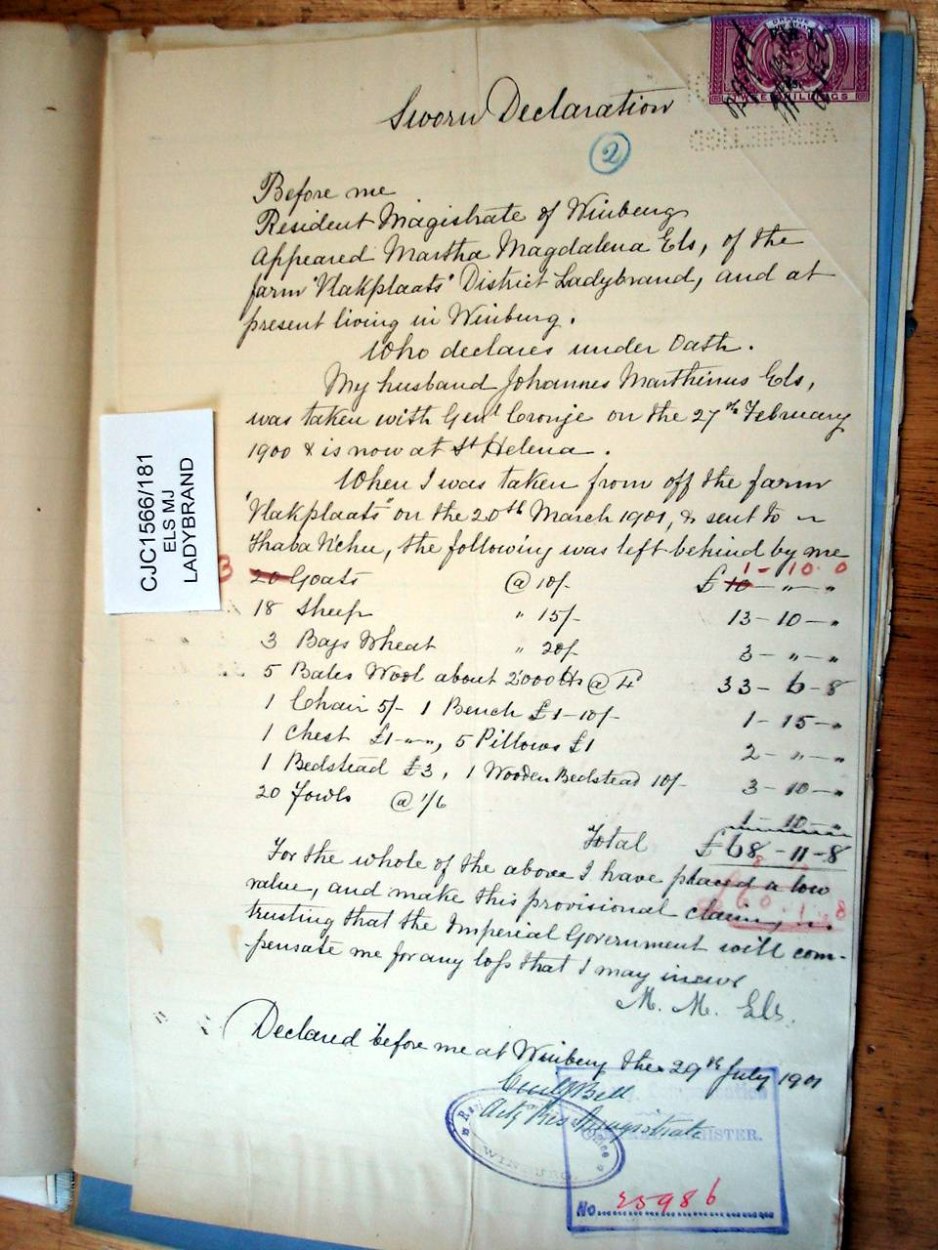 Sworn Declaration
2
Before me
Resident Magistrate of Winburg
Appeared Martha Magdalena Els, of the
farm "Vlakplaats" District Ladybrand, and at
present living in Winburg.
Who declares under Oath.
My husband Johannes Marthinus Els,
was taken with Genl Cronje on the 27th February
1900 & is now at St Helena.
When I was taken from off the farm
"Vlakplaats" on the 20th March 1901, & sent to
Thaba Nchu, the following was left behind by me
3 20 Goats @ 10/- £10 - " - " 1 - 10 - 0
18 Sheep " 15/- 13 - 10 - "
3 Bags Wheat " 20/- 3 - " - "
5 Bales Wool about 2000 lbs @ 4d 33 - 6 - 8
1 Chair 5/- 1 Bench £1-10/- 1 - 15 - "
1 Chest £1-"-", 5 Pillows £1 2 - " - "
1 Bedstead £3, 1 Wooden Bedstead 10/- 3 - 10 - "
20 Fowls @ 1/6 1 - 10 - "
Total £68 - 11 - 8
For the whole of the above I have placed a low
value, and make this provisional claim,
60 . 1 . 8
trusting that the Imperial Government will com-
pensate me for any loss that I may incur
M. M. Els.
Declared before me at Winburg the 29th July 1901
Bell
Actg Res Magistrate
WINBURG
No. 25986
CJC1566/181
ELS MJ
LADYBRAND